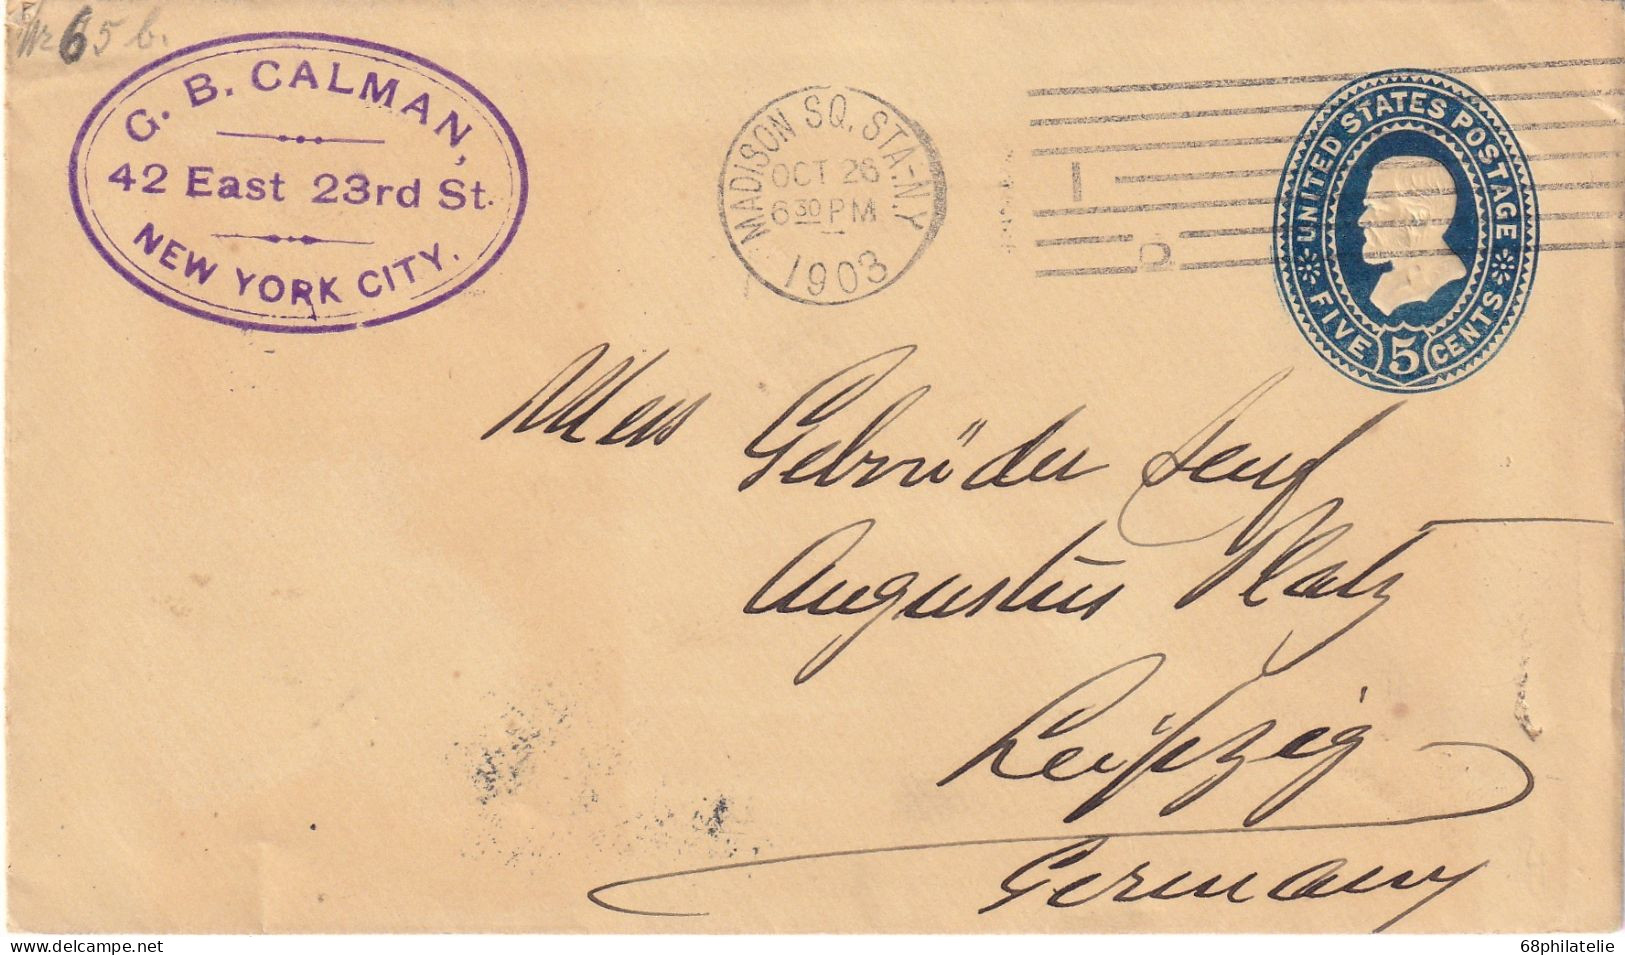 Nr 65 b.
G. B. CALMAN,
42 East 23rd St.
NEW YORK CITY.
MADISON SQ. STA.-N.Y
OCT 26
6 30 PM
1903
1
D
UNITED STATES POSTAGE
FIVE 5 CENTS
Mess Gebrüder Senf
Augustus Platz
Leipzig
Germany
delcampe.net
68philatelie